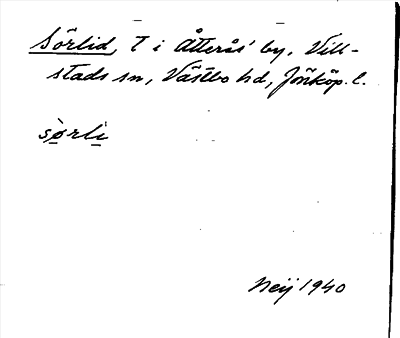 Sörlid, T i Ätterås' by, Vill-
stads sn, Västbo hd, Jönköp. l.
sö̀rli
Neij 1940